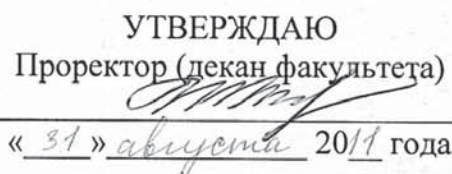 УТВЕРЖДАЮ
Проректор (декан факультета)
« 31 » августа 2011 года